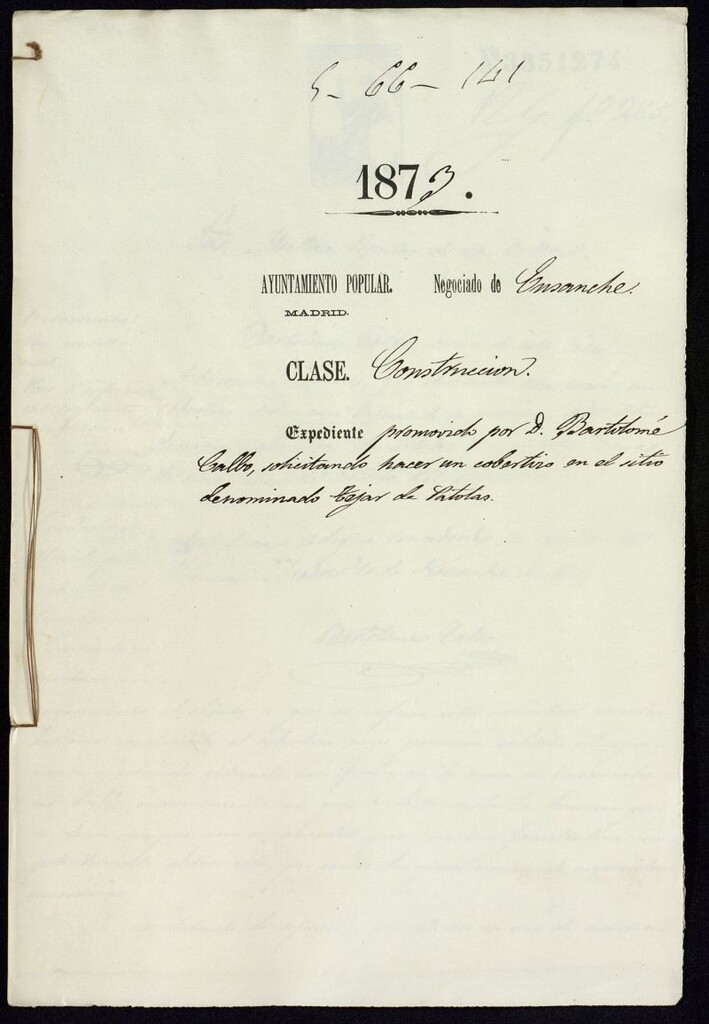 5-66-141
1873.
AYUNTAMIENTO POPULAR. Negociado de Ensanche.
MADRID.
CLASE. Construccion.
Expediente promovido por D. Bartolomé
Calbo, solicitando hacer un cobertizo en el sitio
denominado Tejar de Patolas.